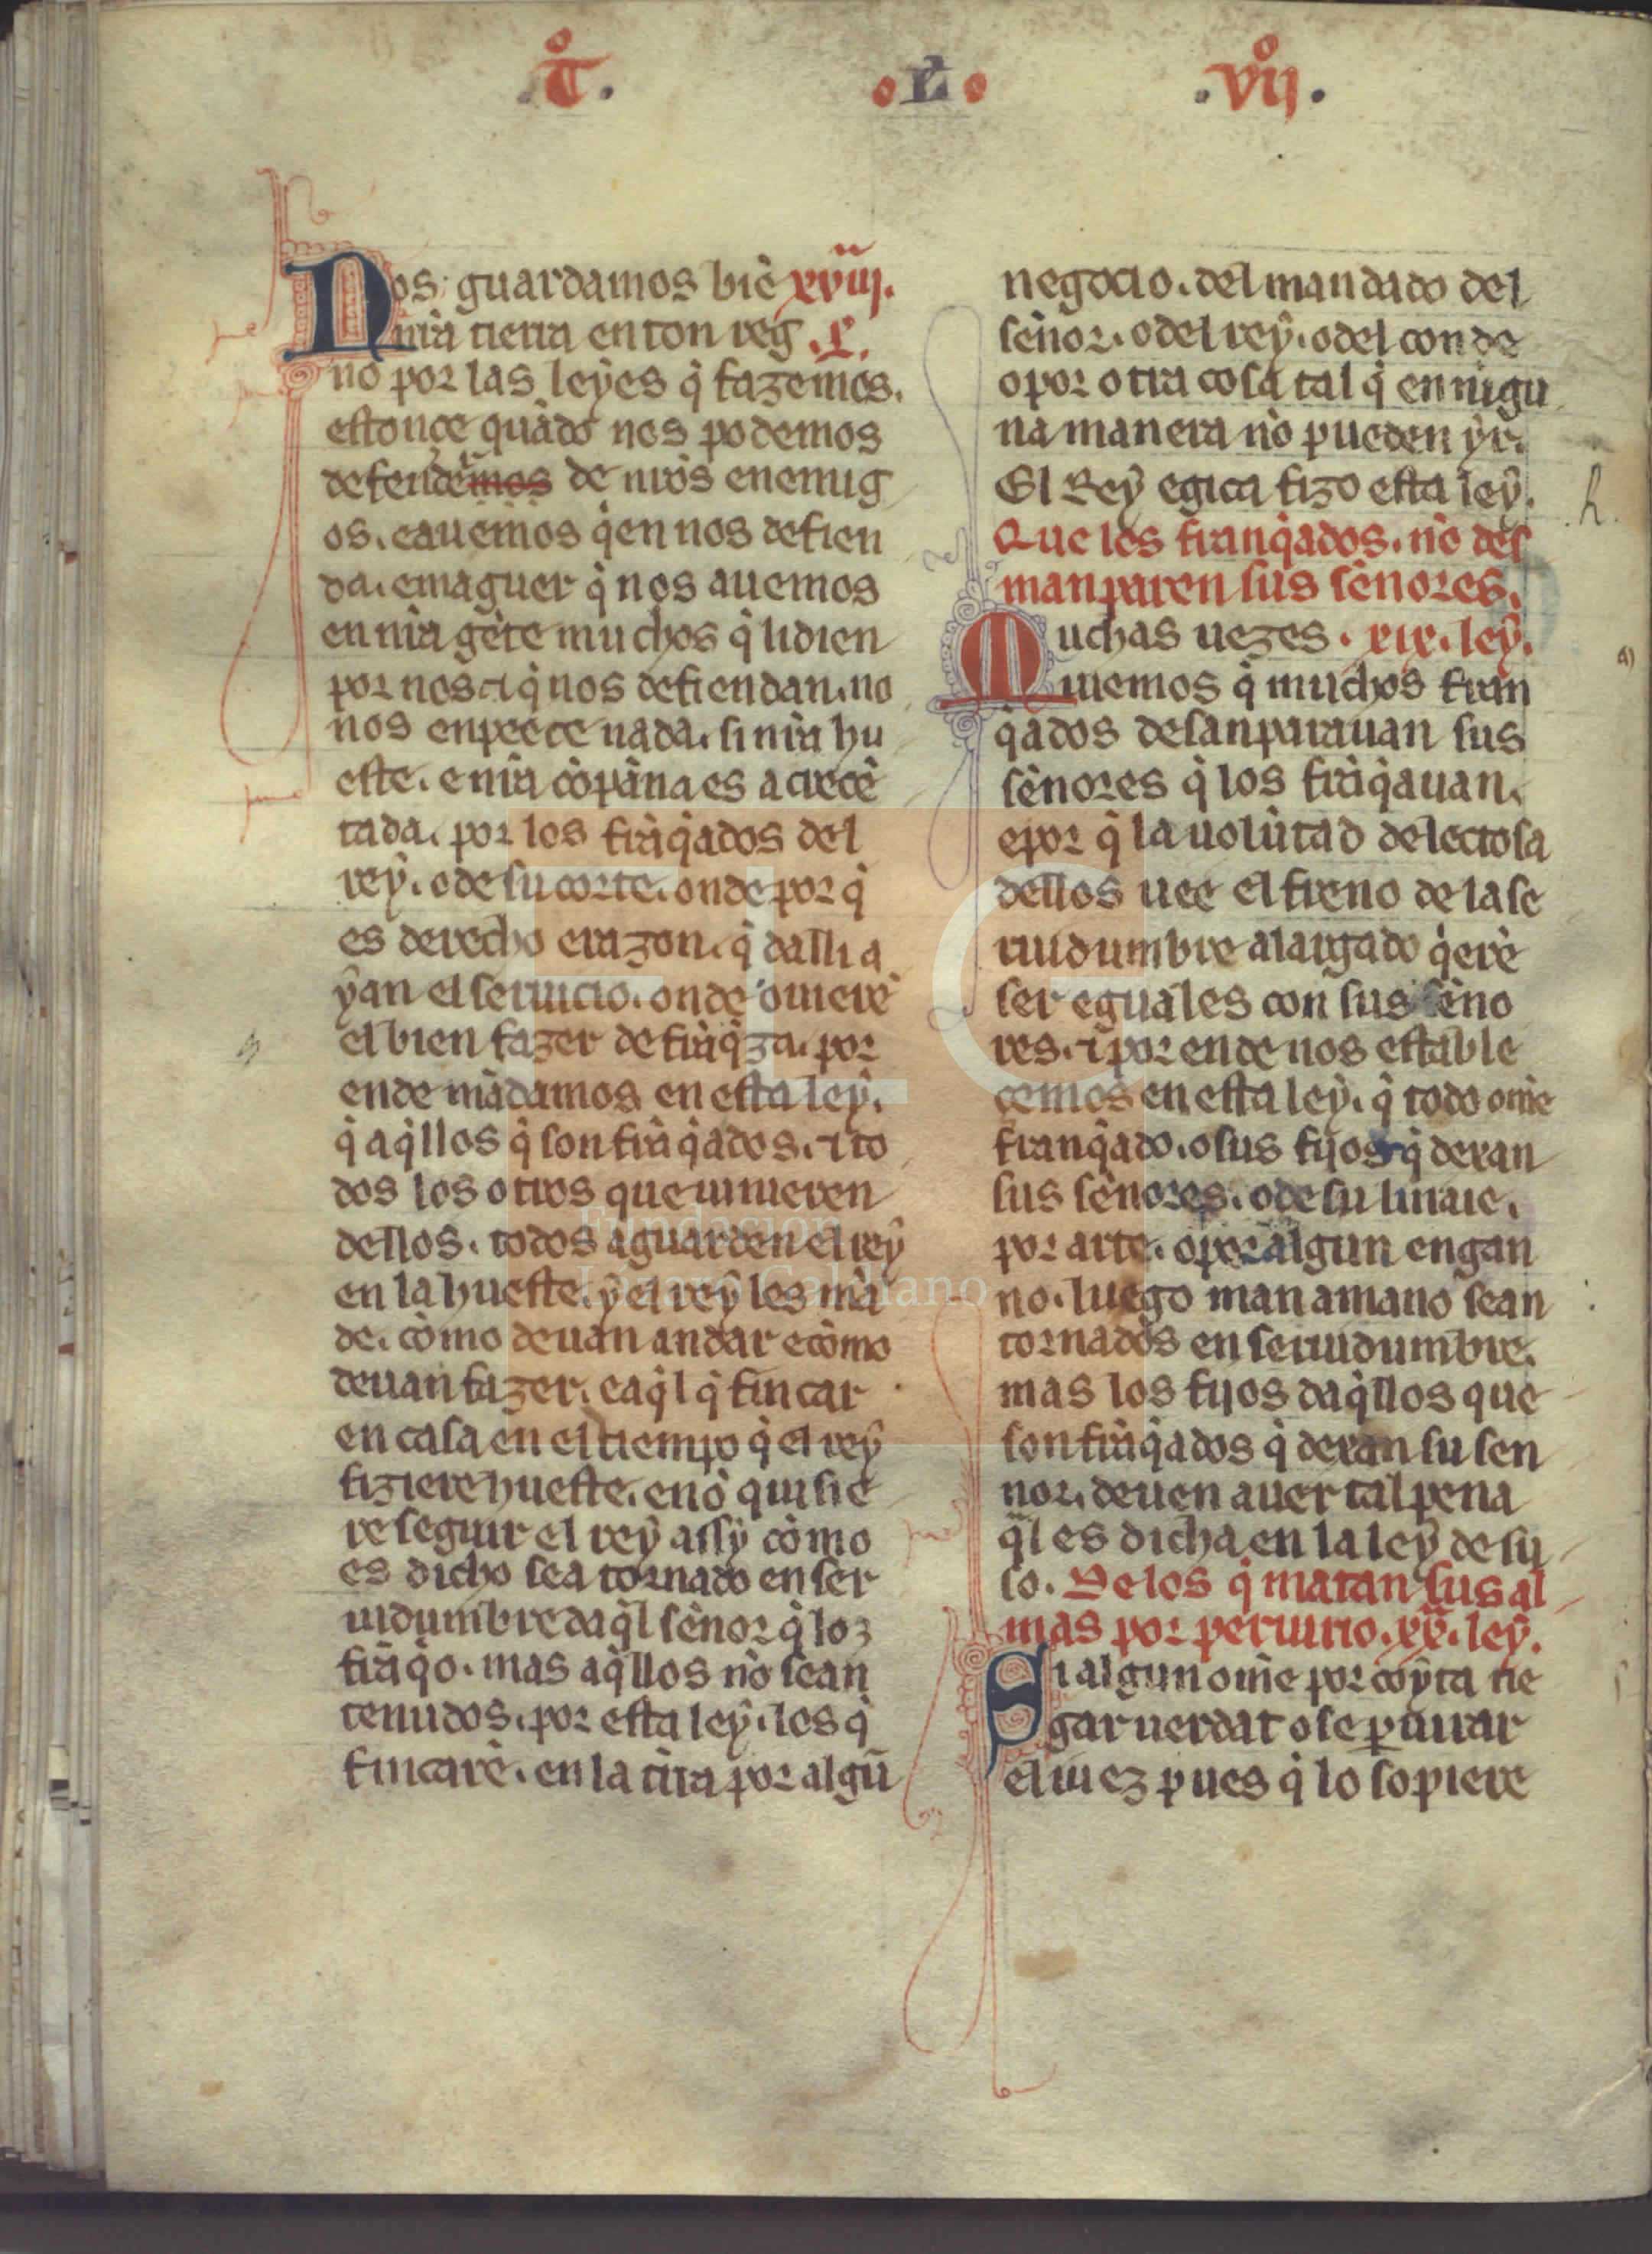 .Tº. L .vijº.
Nos guardamos biẽ xviij.
nr̃a tierra en ton reg .L.
no por las leyes q̃ fazemos.
estonçe quãdo nos podemos
defendemos de nr̃os enemig
os. e auemos q̃en nos defien
da. e maguer q̃ nos auemos
en nr̃a gẽte muchos q̃ lidien
por nos ⁊ q̃ nos defiendan. no
nos enpeece nada. si nr̃a hu
este. e nr̃a cõpãna es acrecẽ
tada. por los frãq̃ados del
rey. o de su corte. onde por q̃
es derecho e razon. q̃ dalli a
yan el seruicio. onde ouierẽ
el bien fazer de frãq̃za. por
ende mãdamos en esta ley.
q̃ aq̃llos q̃ son frãq̃ados. ⁊ to
dos los otros que uinieren
dellos. todos aguarden el rey
en la hueste. y el rey les mã
de. cõmo deuan andar e cõmo
deuan fazer. e aq̃l q̃ fincar
en casa en el tiempo q̃ el rey
fiziere hueste. e nõ quisie
re seguir el rey assy cõmo
es dicho sea tornado en ser
uidumbre daq̃l sẽnor q̃ lo
frãq̃o. mas aq̃llos nõ sean
tenudos. por esta ley. los q̃
fincarẽ. en la tr̃ra por algũ
negocio. del mandado del
sẽnor. o del rey. o del conde
o por otra cosa tal q̃ en nĩgu
na manera nõ pueden yr.
El Rey egica fizo esta ley.
Que los franq̃ados. nõ des
manparen sus sẽnores.
Muchas uezes. xix. ley.
uiemos q̃ muchos fran
q̃ados desanparauan sus
sẽnores q̃ los frãq̃auan.
e por q̃ la uolũtad delectosa
dellos uee el freno de la se
ruidumbre alargado q̃erẽ
ser eguales con sus sẽno
res. ⁊ por ende nos estable
çemos en esta ley. q̃ todo om̃e
franq̃ado. o sus fijos q̃ dexan
sus sẽnores. o de su linaie.
por arte. o por algun engan
no. luego man a mano sean
tornados en seruidumbre.
mas los fijos daq̃llos que
son frãq̃ados q̃ dexan su sen
nor. deuen auer tal pena
q̃l es dicha en la ley de su
so. De los q̃ matan sus al
mas por periurio. xx. ley.
Si algun om̃e por coyta ne
gar uerdat o se ꝑiurar
el iuez pues q̃ lo sopiere
FLG
Fundación
Lázaro Galdiano